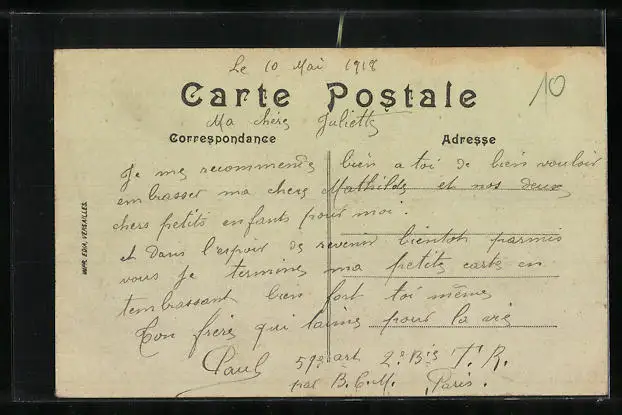 Le 10 Mai 1918
10
Carte Postale
Ma chère Juliette
Correspondance
Adresse
Je me recommende bien a toi de bien vouloir
embrasser ma chere Mathilde et nos deux
chers petits enfants pour moi.
et dans l'espoir de revenir bientôt parmis
vous Je termine ma petite carte en
t'embrassant bien fort toi même
Ton frère qui t'aime pour la vie
Paul 59e art 2e Bis T. R.
par B.C.M. Paris.
IMPR. EDIA, VERSAILLES.